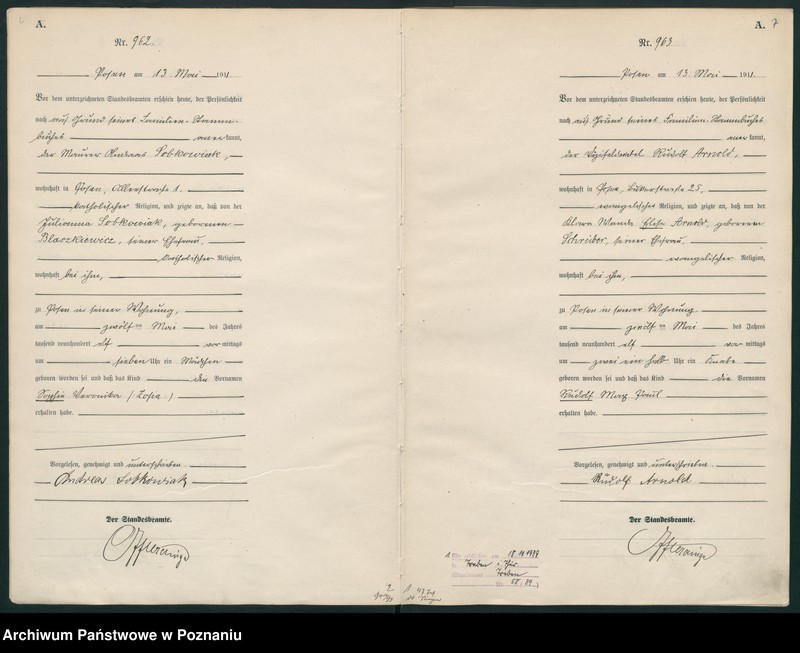 A.
Nr. 962
Posen am 13. Mai 1911
Vor dem unterzeichneten Standesbeamten erschien heute, der Persönlichkeit
nach auf Grund seines Familien-Stamm-
buches anerkannt,
der Maurer Andreas Sobkowiak,
wohnhaft in Posen,
katholischer Religion, und zeigte an, daß von der
Julianna Sobkowiak, geborenen
Blaszkiewicz, seiner Ehefrau,
katholischer Religion,
wohnhaft bei ihm,
zu Posen in seiner Wohnung,
am zwölften Mai des Jahres
tausend neunhundert elf vormittags
um sieben Uhr ein Mädchen
geboren worden sei und daß das Kind die Vornamen
Sophie Veronika (Zofia)
erhalten habe.
Vorgelesen, genehmigt und unterschrieben.
Andreas Sobkowiak
Der Standesbeamte.
A. 7
Nr. 963
Posen am 13. Mai 1911
Vor dem unterzeichneten Standesbeamten erschien heute, der Persönlichkeit
nach auf Grund seines Familien-Stammbuches
anerkannt,
der Rudolf Arnold,
wohnhaft in Posen, 25,
evangelischer Religion, und zeigte an, daß von der
Klara Wanda Arnold, geborenen
Schreiber, seiner Ehefrau,
evangelischer Religion,
wohnhaft bei ihm,
zu Posen in seiner Wohnung
am zwölften Mai des Jahres
tausend neunhundert elf vormittags
um zwei ein halb Uhr ein Knabe
geboren worden sei und daß das Kind die Vornamen
Rudolf Max Paul
erhalten habe.
Vorgelesen, genehmigt und unterschrieben.
Rudolf Arnold
Der Standesbeamte.
Archiwum Państwowe w Poznaniu